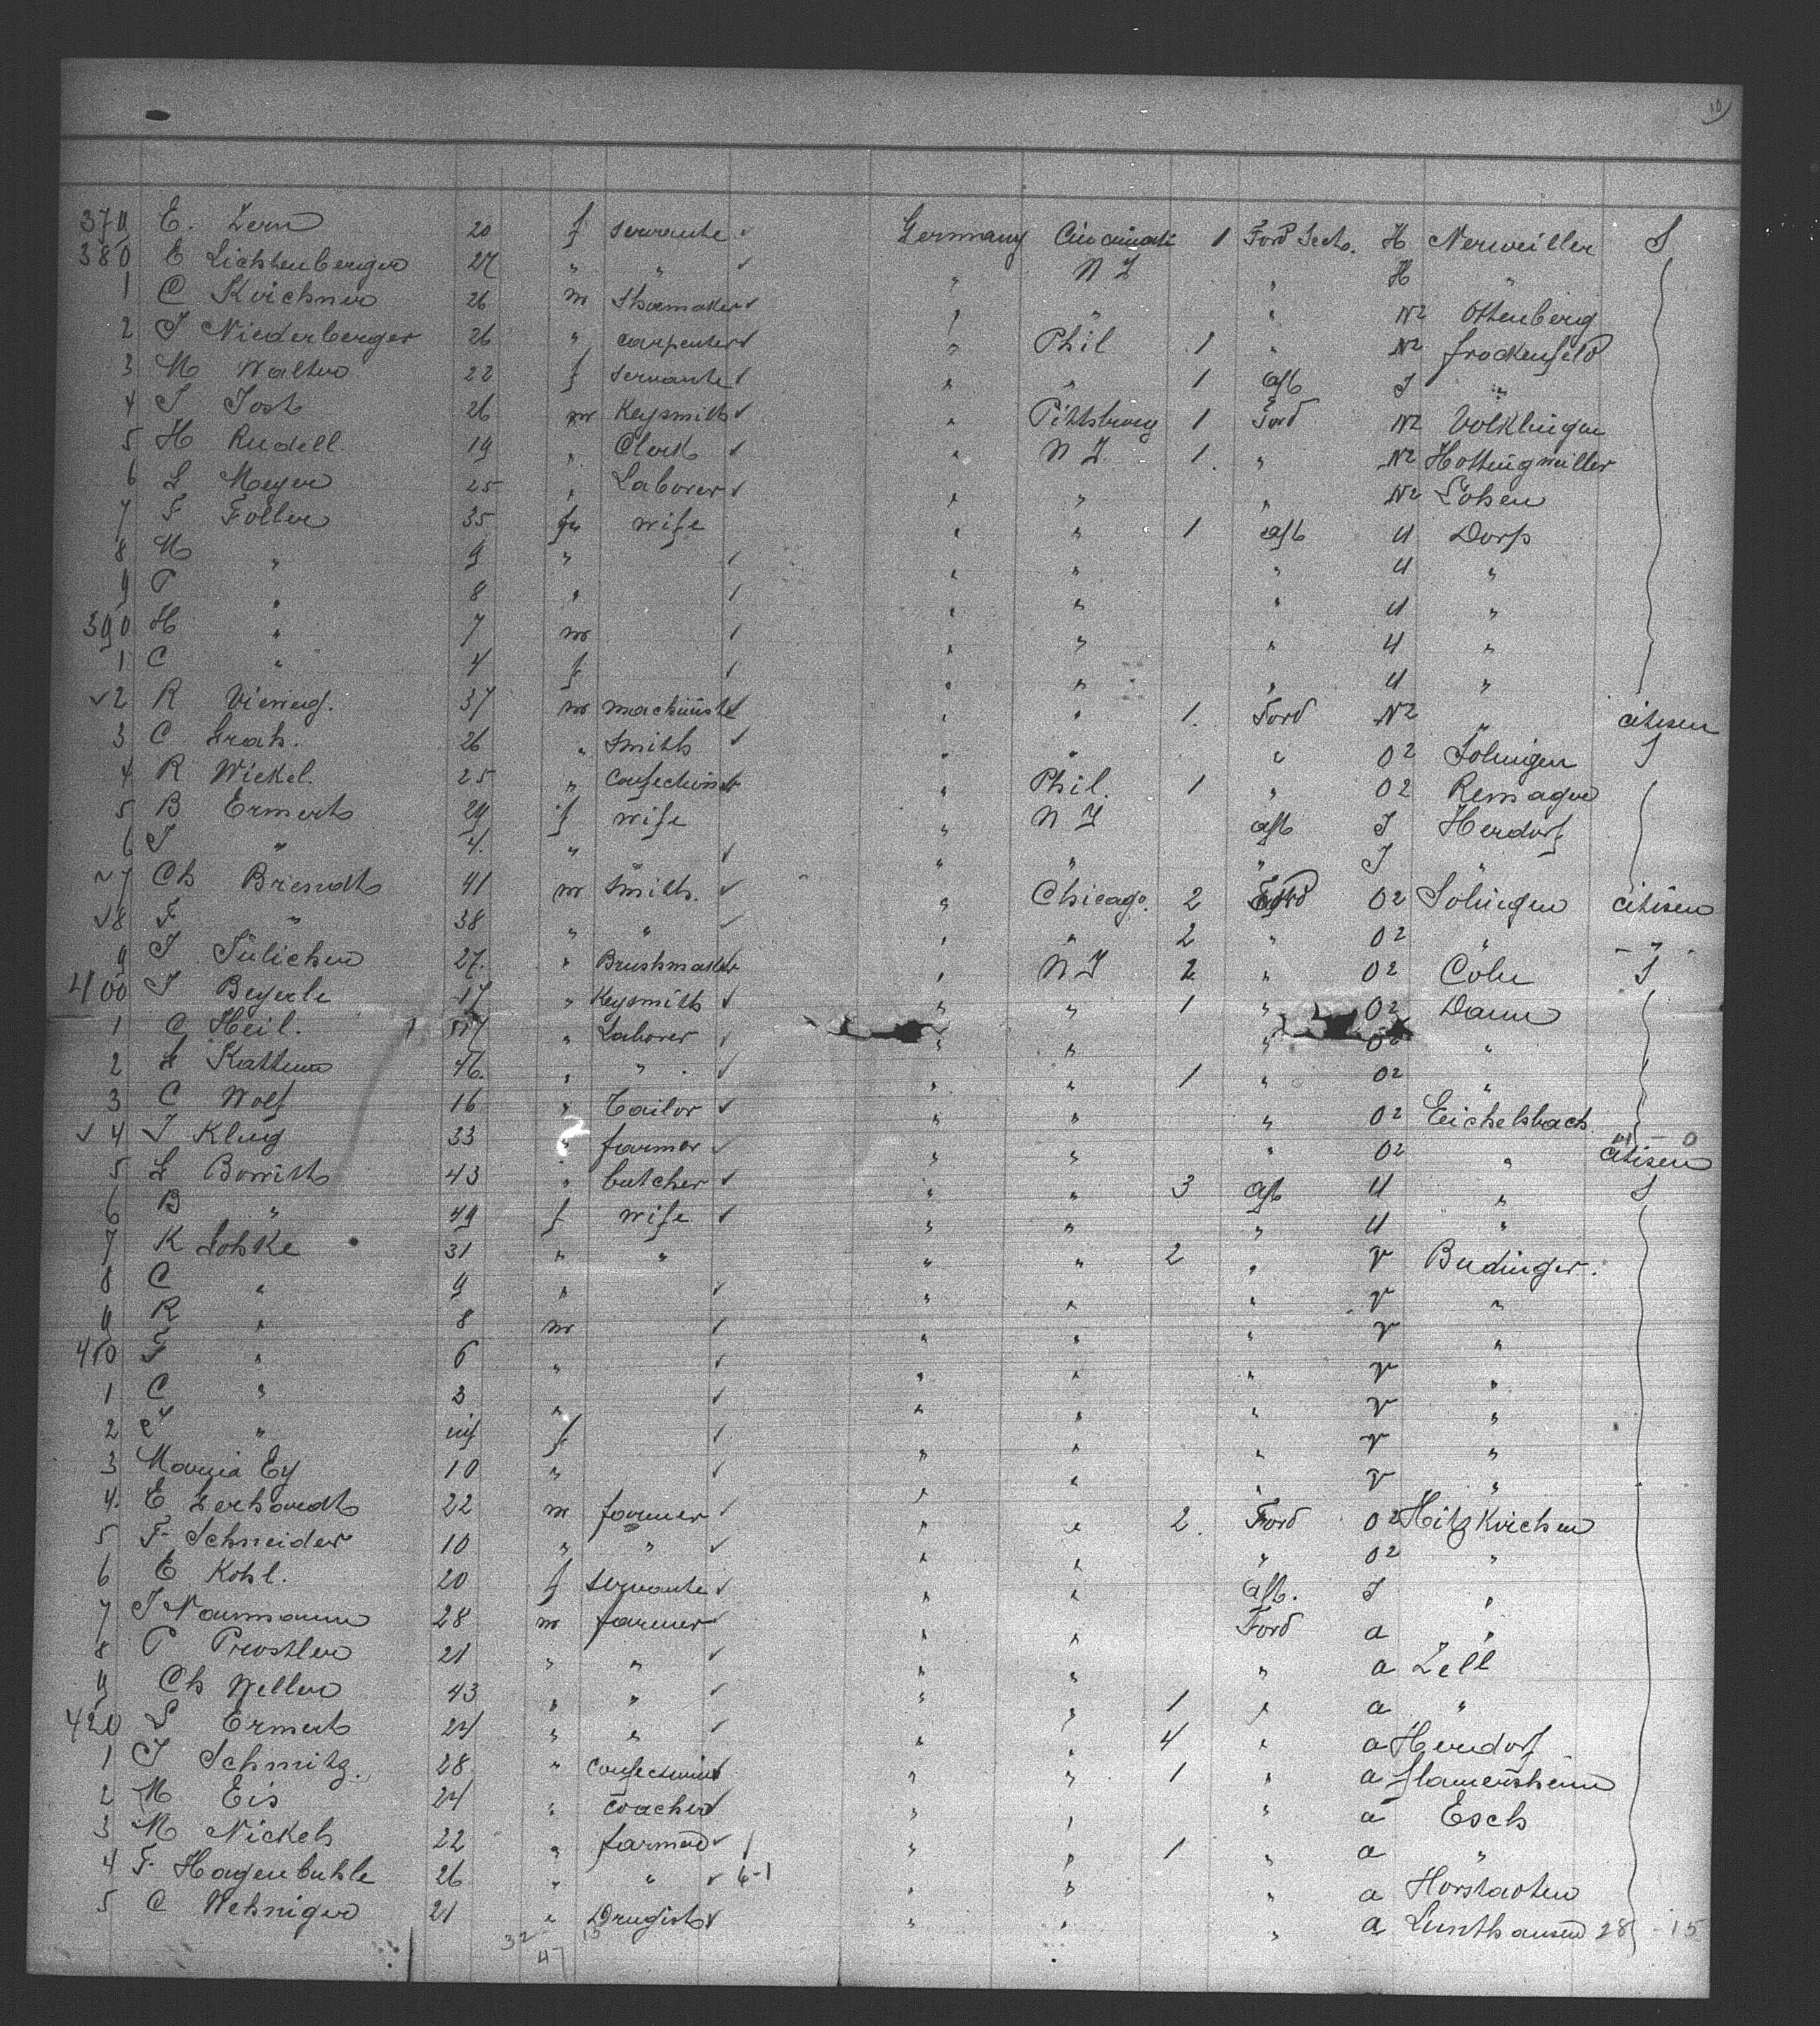 379 E. Zern 20 f servante ✓ Germany Cincinati 1 Ford Secto. H Nerweiller S
380 E Lichtenberger 27 " " ✓ " N Y " H "
1 C Kirchner 26 m Shoemaker ✓ " " " N2 Ottenberg
2 J Niederberger 26 " carpenter ✓ " Phil 1 " N2 frockenfeld
3 M Walter 22 f servante ✓ " " 1 aft J "
4 J Jost 26 m Keysmith ✓ " Pittsburg 1 Ford N2 Volklingen
5 H Rudell. 19 " Clerk ✓ " N Y 1. " N2 Hottingweiller
6 L Meyer 25 " Laborer ✓ " " " N2
7 F Foller 35 f wife " " 1 aft U Dorf
8 M " 9 " ✓ " " " U "
9 P " 8 " ✓ " " " U "
390 H " 7 m ✓ " " " U "
1 C " 4 f ✓ " " " U "
✓2 R Viering. 37 m machinist ✓ " " 1. Ford N2 " citisen
3 C Grah. 26 " Smith ✓ " " " O2 Solingen S
4 R Wickel. 25 " Confectioner ✓ " Phil. 1 " O2 Remagen
5 B Ermert 29 f wife " N Y aft J Herdorf
6 J " 4. " ✓ " " " J "
✓7 Ch Brendt 41 m Smith. ✓ " Chicago. 2 Ford O2 Solingen citisen
✓8 F " 38 " " ✓ " " 2 " O2 " - " -
9 J Jülicher 27. " Brushmaker ✓ " N Y 2 " O2 Coln S
400 J Beyerle 17 " Keysmith ✓ " " 1 " O2 Daun
1 C Heil. 57 " Laborer ✓ " " " O2 "
2 L 46. " " ✓ " " 1 " O2 "
3 C Wolf 16 " Tailor ✓ " " " O2 Eichelsbach
✓4 J Klug 33 " farmer ✓ " " " O2 " citisen
5 L 43 " butcher ✓ " " 3 aft U " S
6 B " 49 f wife ✓ " " " U "
7 K Lohke 31 " " " " 2 " V Budinger.
8 C " 9 " ✓ " " " V "
9 R " 8 m ✓ " " " V "
410 F " 6 " ✓ " " " V "
1 C " 3 " ✓ " " " V "
2 " inf f ✓ " " " V "
3 Maria Ey 10 " ✓ " " " V "
4. E Gerhardt 22 m farmer ✓ " " 2. Ford O2 Hitzkirchen
5 F. Schneider 10 " " ✓ " " " O2 "
6 E Kohl. 20 f servante ✓ " " aft. J "
7 J Naumann 28 m farmer ✓ " " Ford a "
8 P Prostler 21 " " ✓ " " " a Zell
9 Ch Weller 43 " " ✓ " " 1 " a "
420 L Ermert 24 " " ✓ " " 4 " a Herdorf
1 J Schmitz. 28 " Confectioner ✓ " " 1 " a flamersheim
2 M Eis 24 " coacher ✓ " " " a Esch
3 M Nickels 22 " farmer ✓ / " " 1 " a "
4 F. Hagenbuhle 26 " " ✓ 6-1 " " " a
5 C Wehniger 21 " Drugist ✓ " " " a 28 - 15
32 15
47